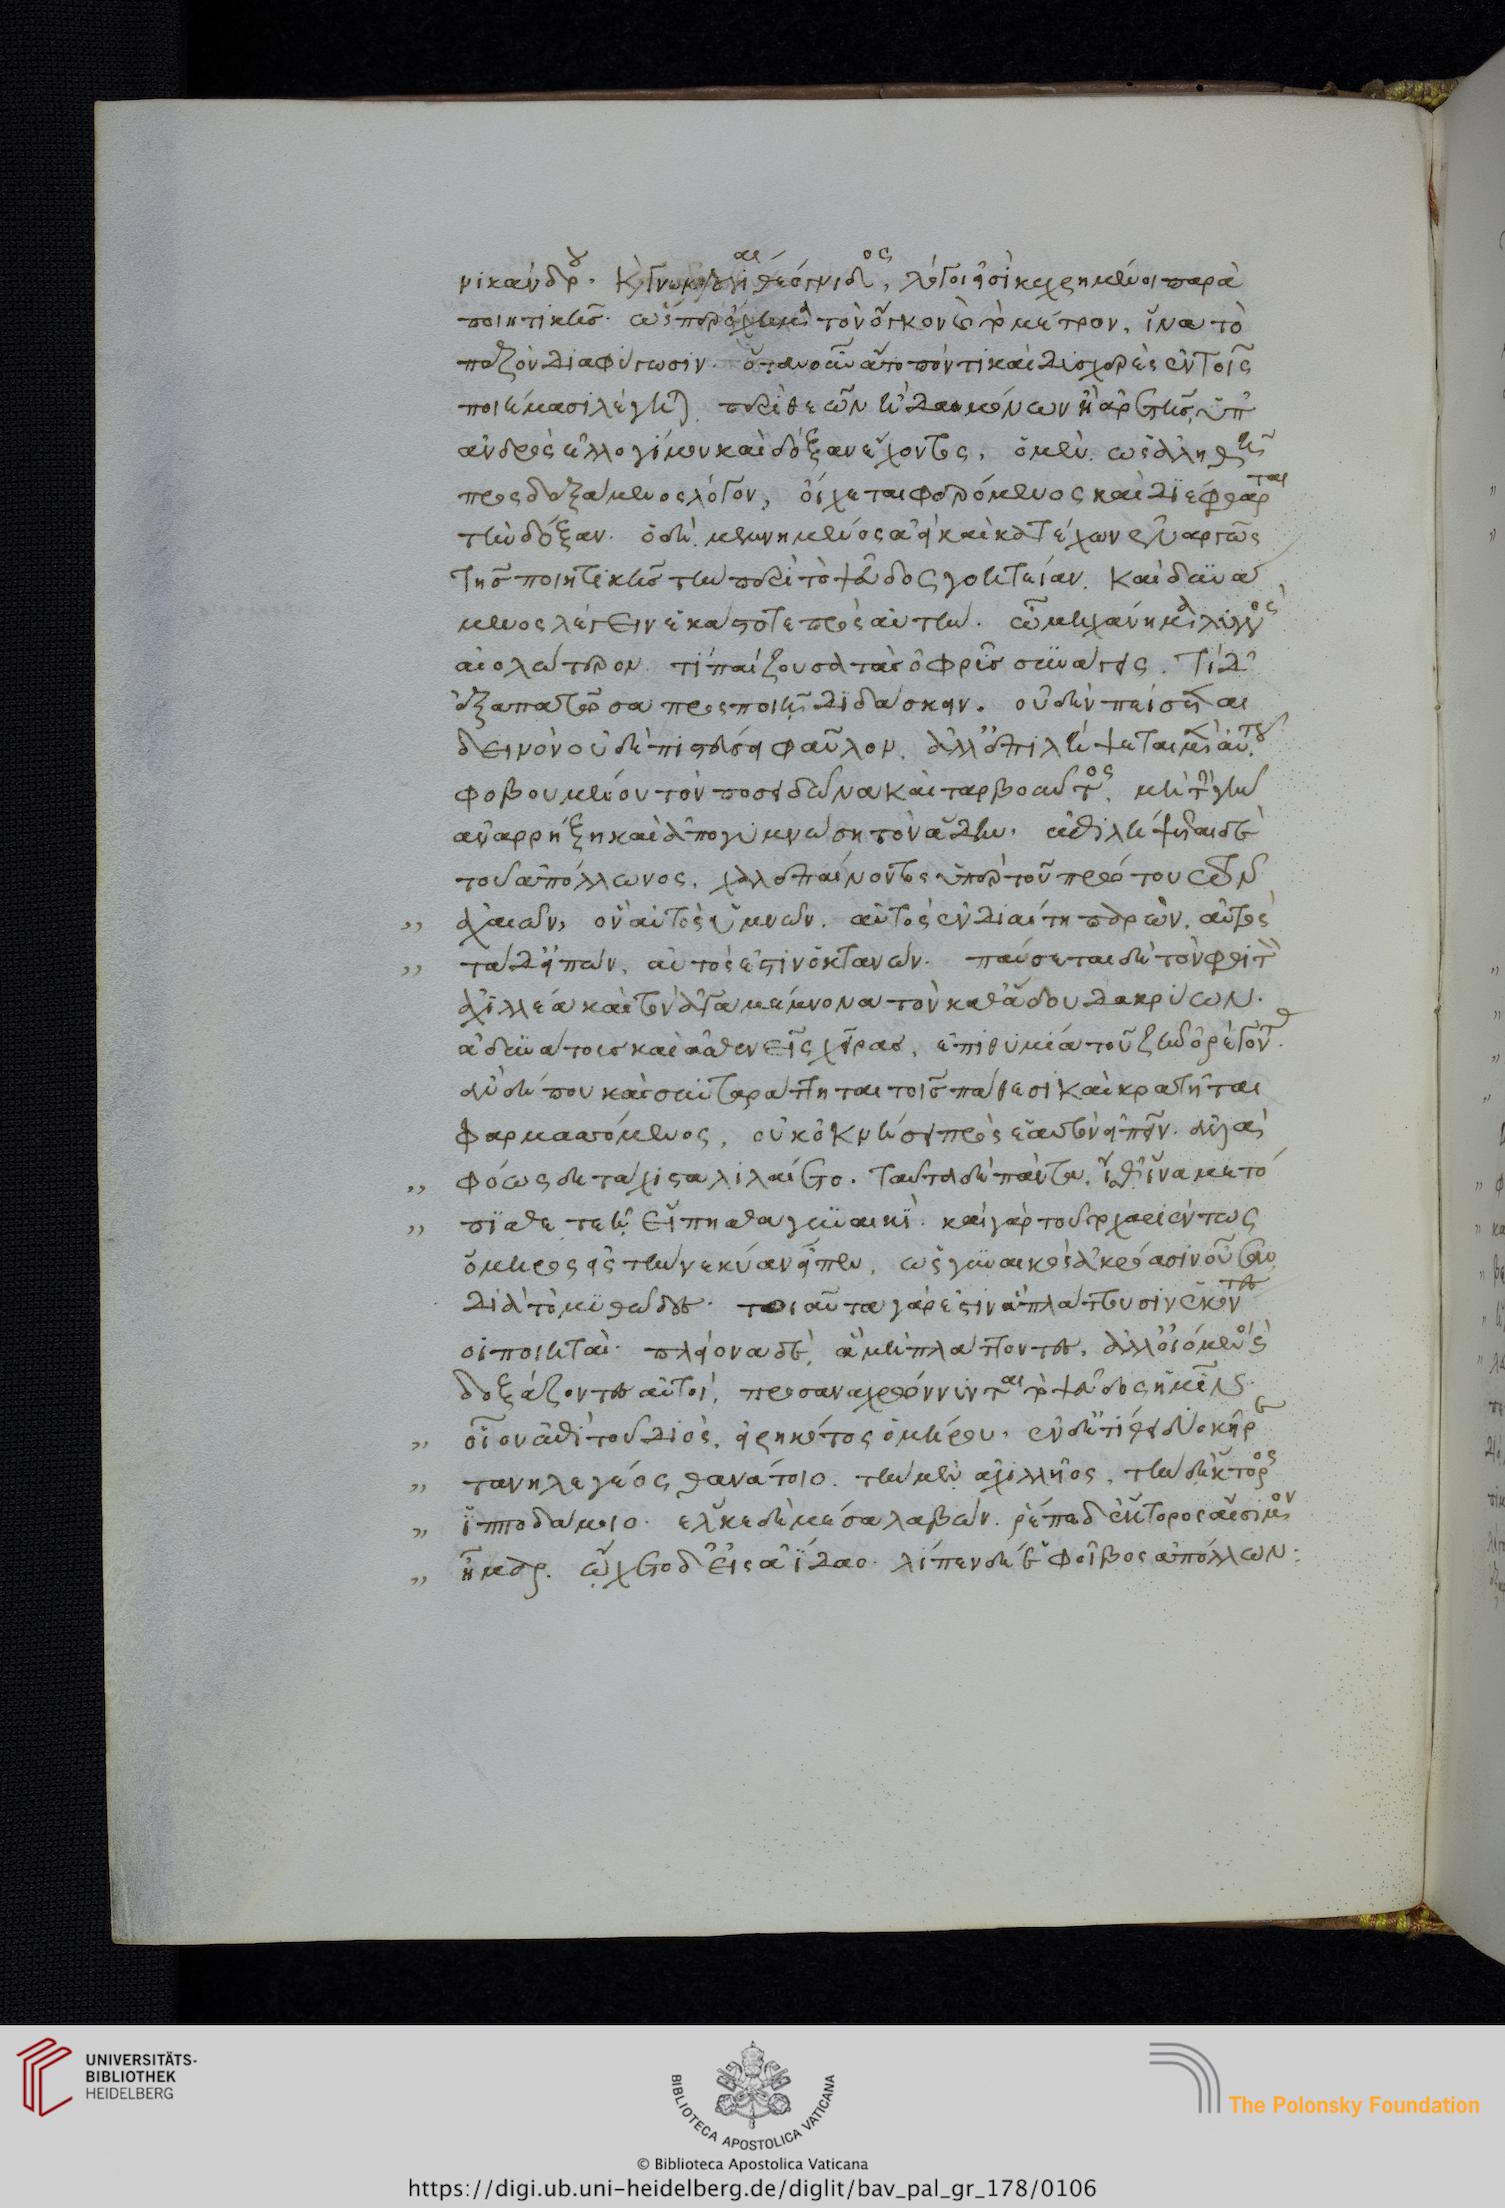 νικάνδρου. καὶ γνωμολογίαι θεόγνιδος, λόγοι εἰσὶ κεχρημένοι παρὰ
ποιητικῆς. ὥσπερ ὄχημα τὸν ὄγκον καὶ τὸ μέτρον, ἵνα τὸ
πεζὸν διαφύγωσιν. ὅταν οὖν ἄτοπόν τι καὶ δυσχερὲς ἐν τοῖς
ποιήμασι λέγηται περὶ θεῶν ἢ δαιμόνων ἢ ἀρετῆς, ὑπ'
ἀνδρὸς ἐλλογίμου καὶ δόξαν ἔχοντος, ὁ μὲν ὡς ἀληθῆ
προσδεξάμενος λόγον, οἴχεται φερόμενος καὶ διέφθαρται
τὴν δόξαν. ὁ δὲ μεμνημένος ἀεὶ καὶ κατέχων ἐναργῶς
τῆς ποιητικῆς τὴν περὶ τὸ ψεῦδος γοητείαν. καὶ δυνά
μενος λέγειν ἑκάστοτε πρὸς αὐτήν. ὦ μηχάνημα λυγγὸς
αἰολώτερον. τί παίζουσα τὰς ὀφρῦς συνάγεις. τί δ'
ἐξαπατῶσα προσποιῇ διδάσκειν. οὐδὲν πείσεται
δεινὸν οὐδὲ πιστεύσει φαῦλον. ἀλλ' ἐπιλήψεται μὲν αὐτοῦ
φοβουμένου τὸν ποσειδῶνα καὶ ταρβοῦντος, μὴ τὴν γῆν
ἀναρρήξη καὶ ἀπογυμνώση τὸν ἅδην. ἐπιλήψεται δὲ
τοῦ ἀπόλλωνος, χαλεπαίνοντος ὑπὲρ τοῦ πρώτου τῶν
ἀχαιῶν, ὃν αὐτὸς ὑμνῶν. αὐτὸς ἐν διαίτη παρὼν. αὐτὸς
τάδ' εἰπὼν, αὐτός ἐστιν ὁ κτανών. παύσεται δὲ τὸν φθιτὸν
ἀχιλλέα καὶ τὸν ἀγαμέμνονα τὸν καθ' ἅδου δακρύων.
ἀδυνάτους καὶ ἀσθενεῖς χεῖρας, ἐπιθυμία τοῦ ζῆν ὀρέγοντας.
ἂν δέ που καὶ συνταράττηται τοῖς πάθεσι καὶ κρατῆται
φαρμασσόμενος, οὐκ ὀκνήσει πρὸς ἑαυτὸν εἰπεῖν. ἀλλὰ
φόως δε τάχιστα λιλαίεο. ταῦτα δὲ πάντα, ἴσθ' ἵνα μετό
πισθε τεῇ εἴπησθα γυναικί. καὶ γὰρ τοῦτο χαριέντως
ὅμηρος εἰς τὴν νεκύαν εἶπεν, ὡς γυναικὸς ἀκρόασιν οὖσαν
διὰ τὸ μυθῶδες. τοιαῦτα γάρ ἐστιν ἃ πλάττουσιν ἑκόντες
οἱ ποιηταί. πλείονα δὲ, ἃ μὴ πλάττοντες, ἀλλ' οἰόμενοι καὶ
δοξάζοντες αὐτοί, προσαναχρώννυνται τὸ ψεῦδος ἡμῖν.
οἷον ἐπὶ τοῦ διὸς, εἰρηκότος ὁμήρου. ἐν δ' ἐτίθει δύο κῆρε
τανηλεγέος θανάτοιο. τὴν μὲν ἀχιλλῆος, τὴν δ' ἕκτορος
ἱπποδάμοιο. ἕλκε δὲ μέσα λαβών. ῥέπε δ' ἕκτορος αἴσιμον
ἦμαρ. ᾤχετο δ' εἰς ἀΐδαο. λίπεν δέ ἑ φοῖβος ἀπόλλων:
UNIVERSITÄTS-
BIBLIOTHEK
HEIDELBERG
BIBLIOTECA APOSTOLICA VATICANA
The Polonsky Foundation
© Biblioteca Apostolica Vaticana
https://digi.ub.uni-heidelberg.de/diglit/bav_pal_gr_178/0106